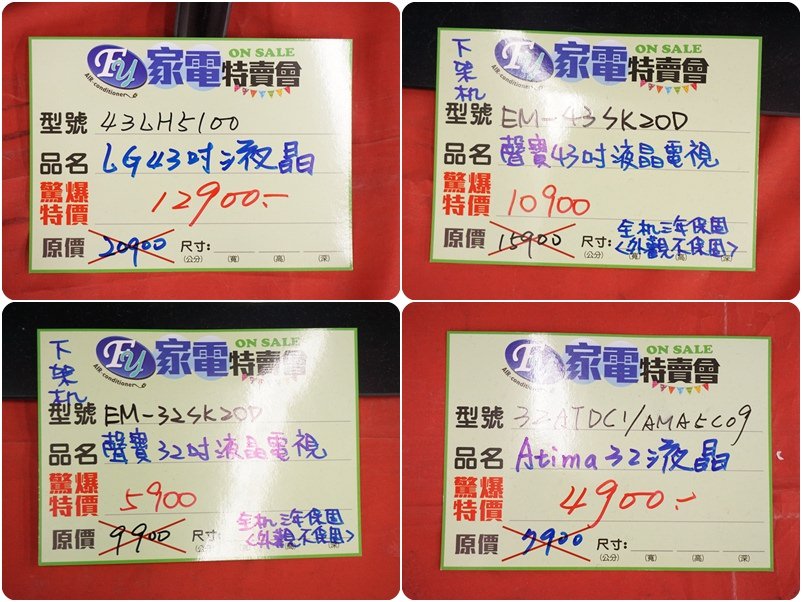 FY 家電特賣會 ON SALE
AIR-conditioner
型號 43LH5100
品名 LG43吋液晶
驚爆特價 12900.-
原價 20900 尺寸:
(公分) (寬) (高) (深)
下架机
FY 家電特賣會 ON SALE
AIR-conditioner
型號 EM-43SK20D
品名 聲寶43吋液晶電視
驚爆特價 10900
全机三年保固
原價 15900 尺寸: <外觀不保固>
(公分) (寬) (高) (深)
下架机
FY 家電特賣會 ON SALE
AIR-conditioner
型號 EM-32SK20D
品名 聲寶32吋液晶電視
驚爆特價 5900
全机三年保固
原價 9900 尺寸: <外觀不保固>
(公分) (寬) (高) (深)
FY 家電特賣會 ON SALE
AIR-conditioner
型號 32ATDC1/AMAEC09
品名 Atima32液晶
驚爆特價 4900.-
原價 7900 尺寸:
(公分) (寬) (高) (深)